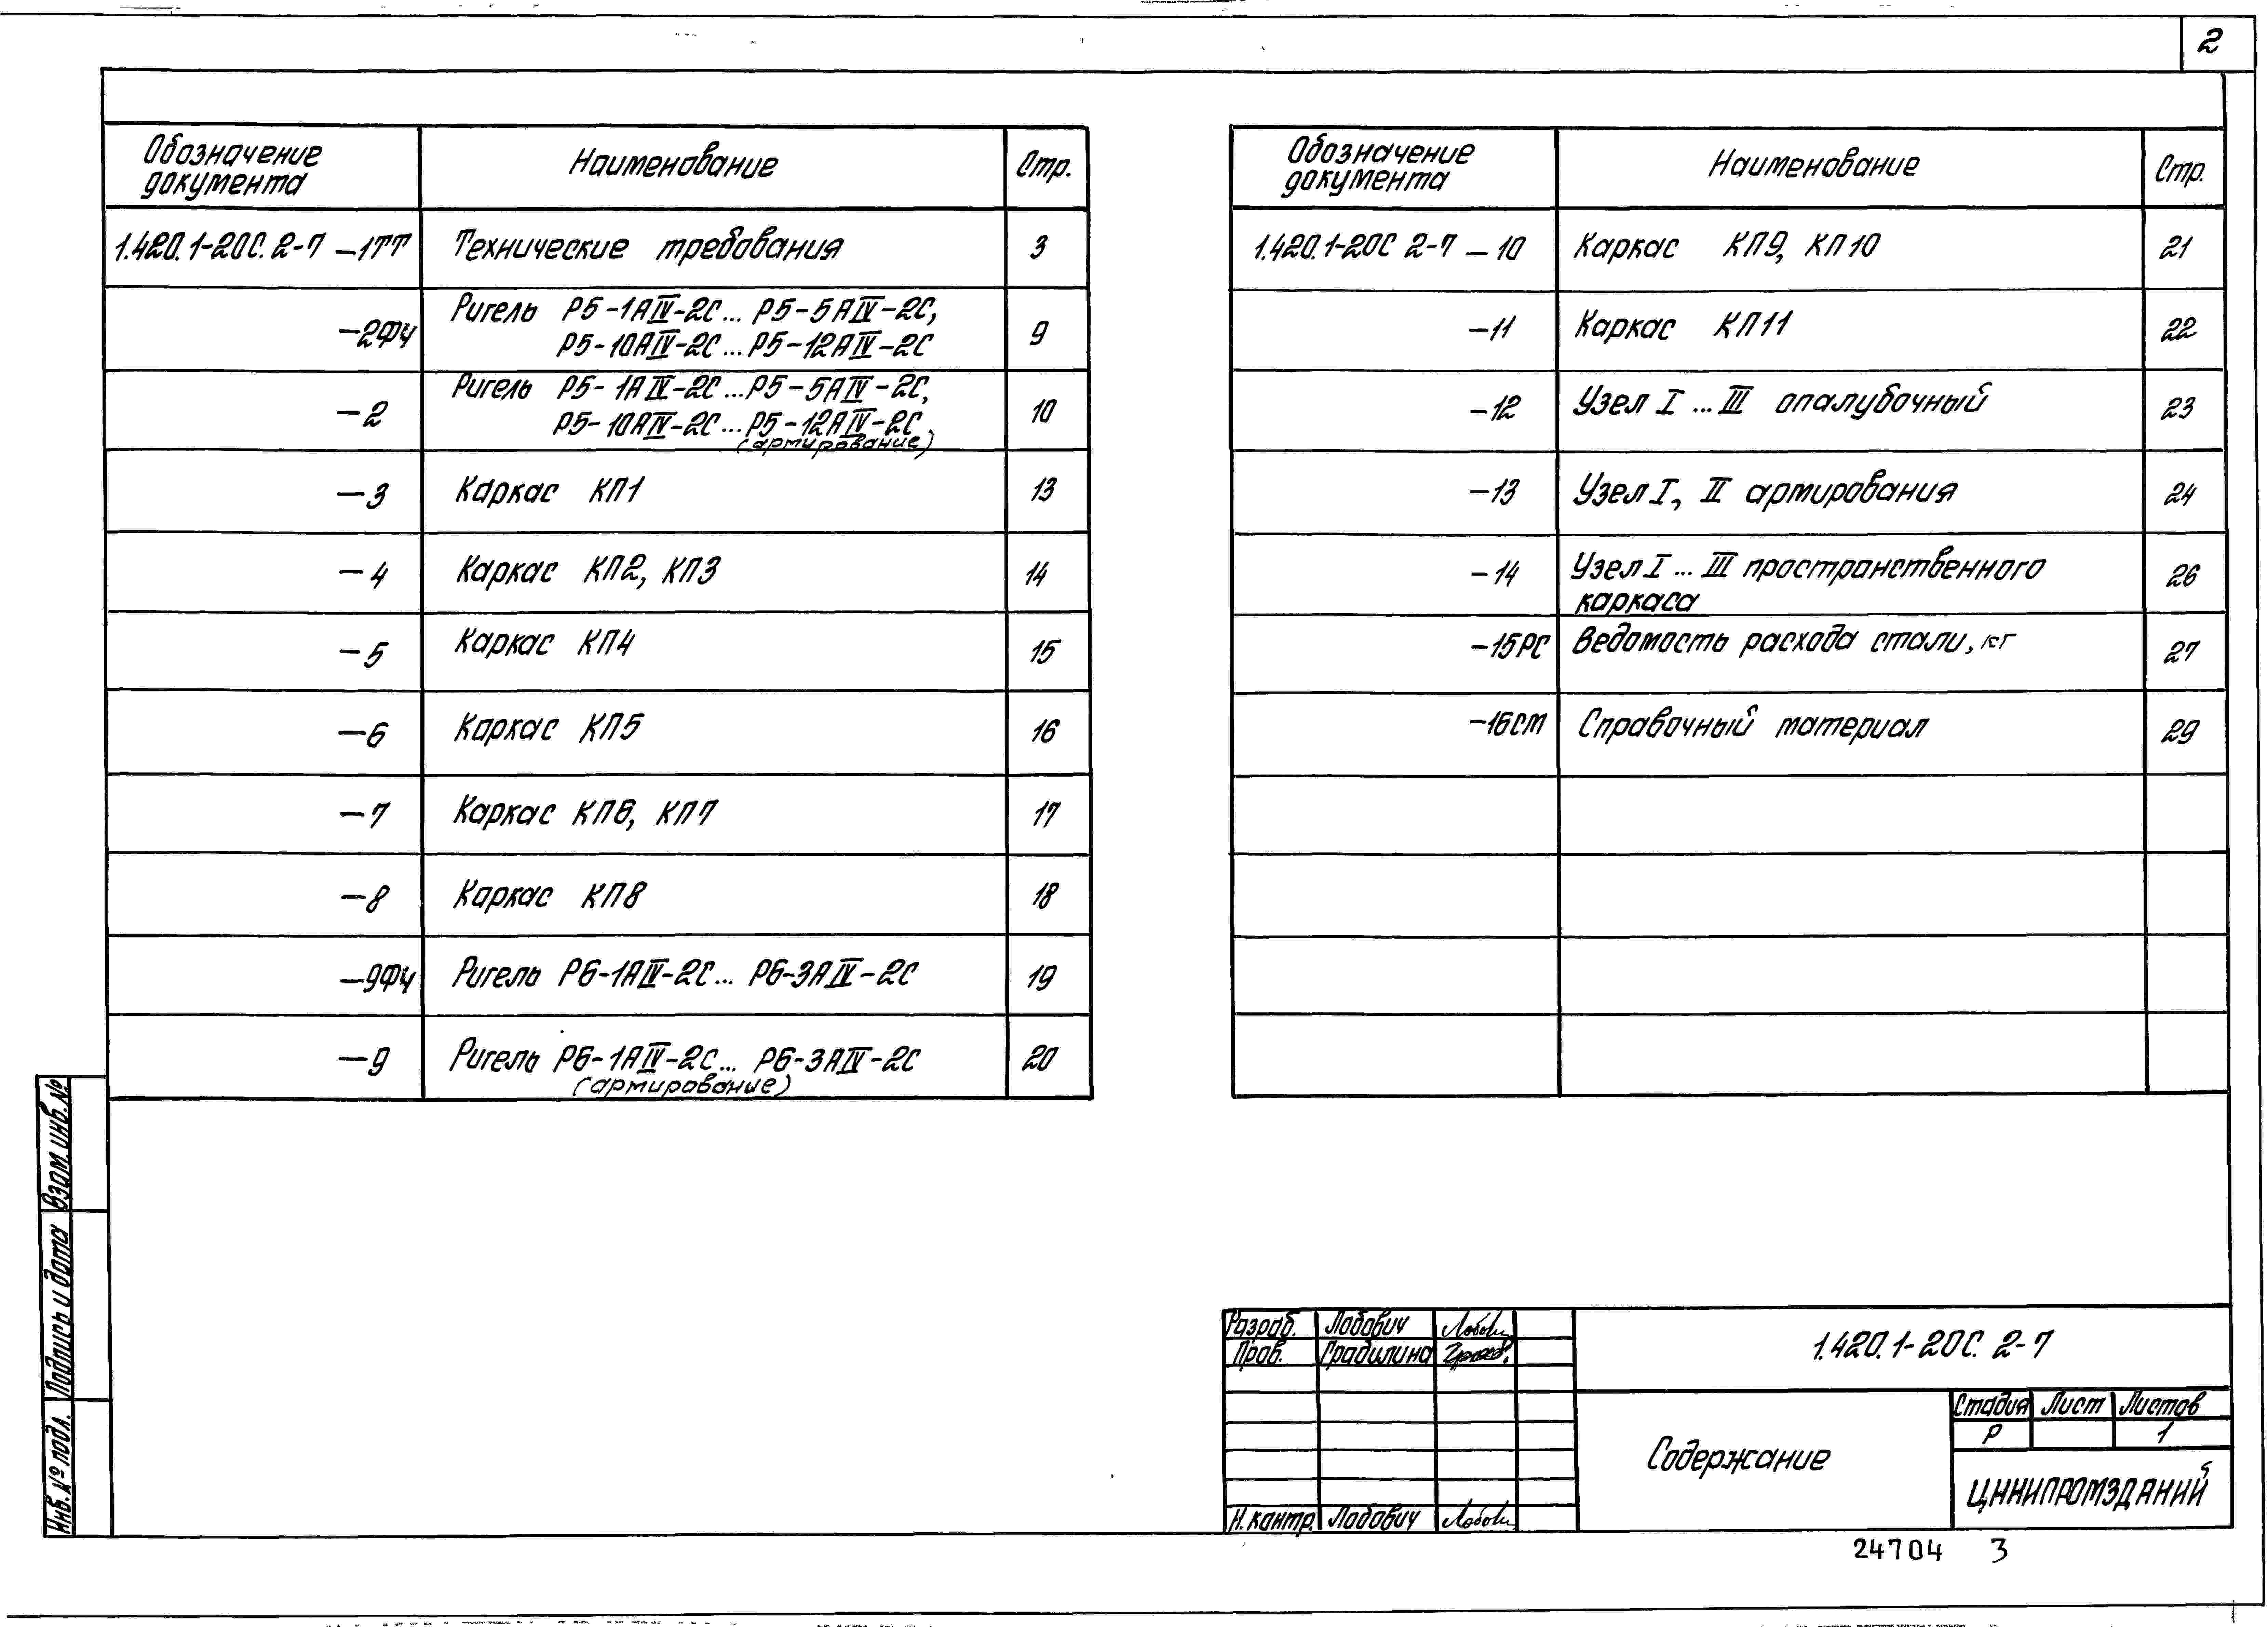 2
Обозначение документа Наименование Стр.
1.420.1-20С.2-7 -1ТТ Технические требования 3
-2ФЧ Ригель Р5-1АIV-2С... Р5-5АIV-2С,
Р5-10АIV-2С... Р5-12АIV-2С 9
-2 Ригель Р5-1АIV-2С...Р5-5АIV-2С,
Р5-10АIV-2С...Р5-12АIV-2С 10
(армирование)
-3 Каркас КП1 13
-4 Каркас КП2, КП3 14
-5 Каркас КП4 15
-6 Каркас КП5 16
-7 Каркас КП6, КП7 17
-8 Каркас КП8 18
-9ФЧ Ригель Р6-1АIV-2С... Р6-3АIV-2С 19
-9 Ригель Р6-1АIV-2С... Р6-3АIV-2С 20
(армирование)
Обозначение документа Наименование Стр.
1.420.1-20С 2-7 -10 Каркас КП9, КП10 21
-11 Каркас КП11 22
-12 Узел I ... III опалубочный 23
-13 Узел I, II армирования 24
-14 Узел I ... III пространственного
каркаса 26
-15РС Ведомость расхода стали, кг 27
-16СМ Справочный материал 29
Взам. инв. №
Подпись и дата
Инв. № подл.
Разраб. Лобович
Пров. Градилина
Н. контр. Лобович
1.420.1-20С. 2-7
Содержание
Стадия Лист Листов
Р 1
ЦНИИПРОМЗДАНИЙ
24704 3